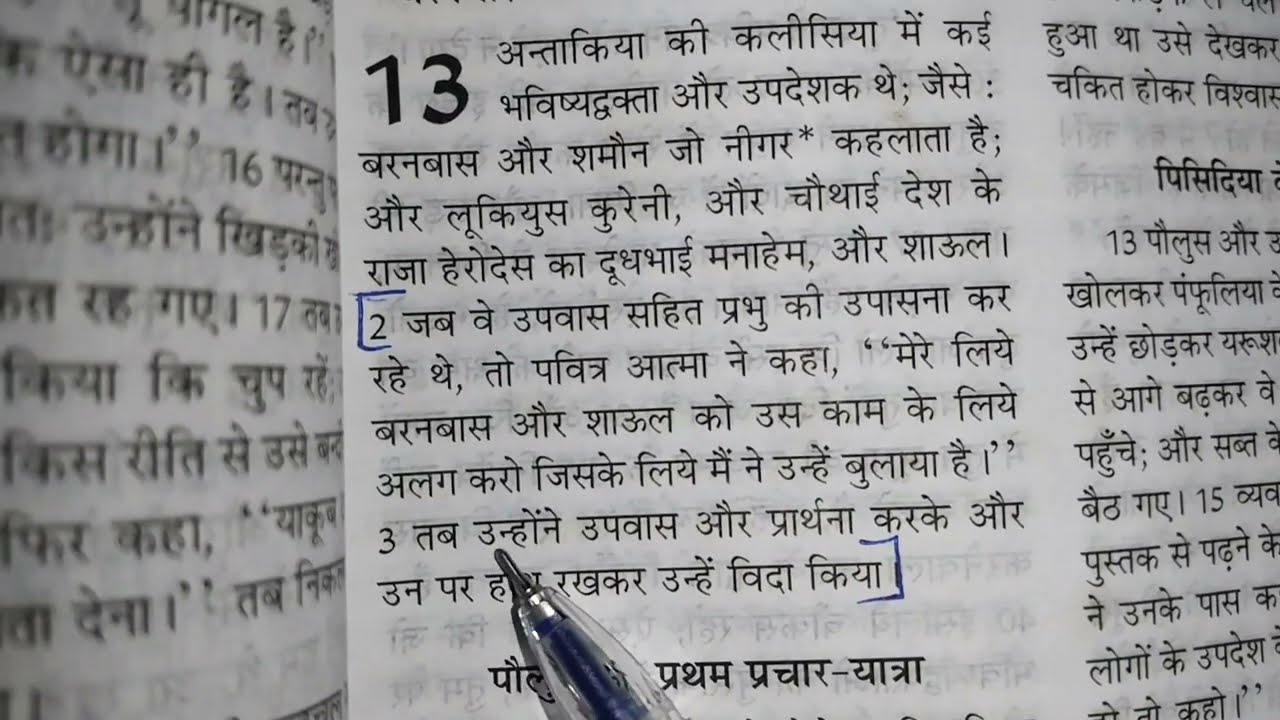 पागल है।"
ऐसा ही है। तब
होगा।" 16 परन्तु
उन्होंने खिड़की
रह गए। 17 तब
किया कि चुप रहें;
किस रीति से उसे
फिर कहा, "याकूब
देना।" तब
13 अन्ताकिया की कलीसिया में कई
भविष्यद्वक्ता और उपदेशक थे; जैसे :
बरनबास और शमौन जो नीगर* कहलाता है;
और लूकियुस कुरेनी, और चौथाई देश के
राजा हेरोदेस का दूधभाई मनाहेम, और शाऊल।
2 जब वे उपवास सहित प्रभु की उपासना कर
रहे थे, तो पवित्र आत्मा ने कहा, "मेरे लिये
बरनबास और शाऊल को उस काम के लिये
अलग करो जिसके लिये मैं ने उन्हें बुलाया है।"
3 तब उन्होंने उपवास और प्रार्थना करके और
उन पर रखकर उन्हें विदा किया
प्रथम प्रचार-यात्रा
हुआ था उसे देखकर
चकित होकर विश्वास
पिसिदिया
13 पौलुस और
खोलकर पंफूलिया
उन्हें छोड़कर
से आगे बढ़कर वे
पहुँचे; और सब्त
बैठ गए। 15
पुस्तक से पढ़ने के
ने उनके पास
लोगों के उपदेश
तो कहो।"